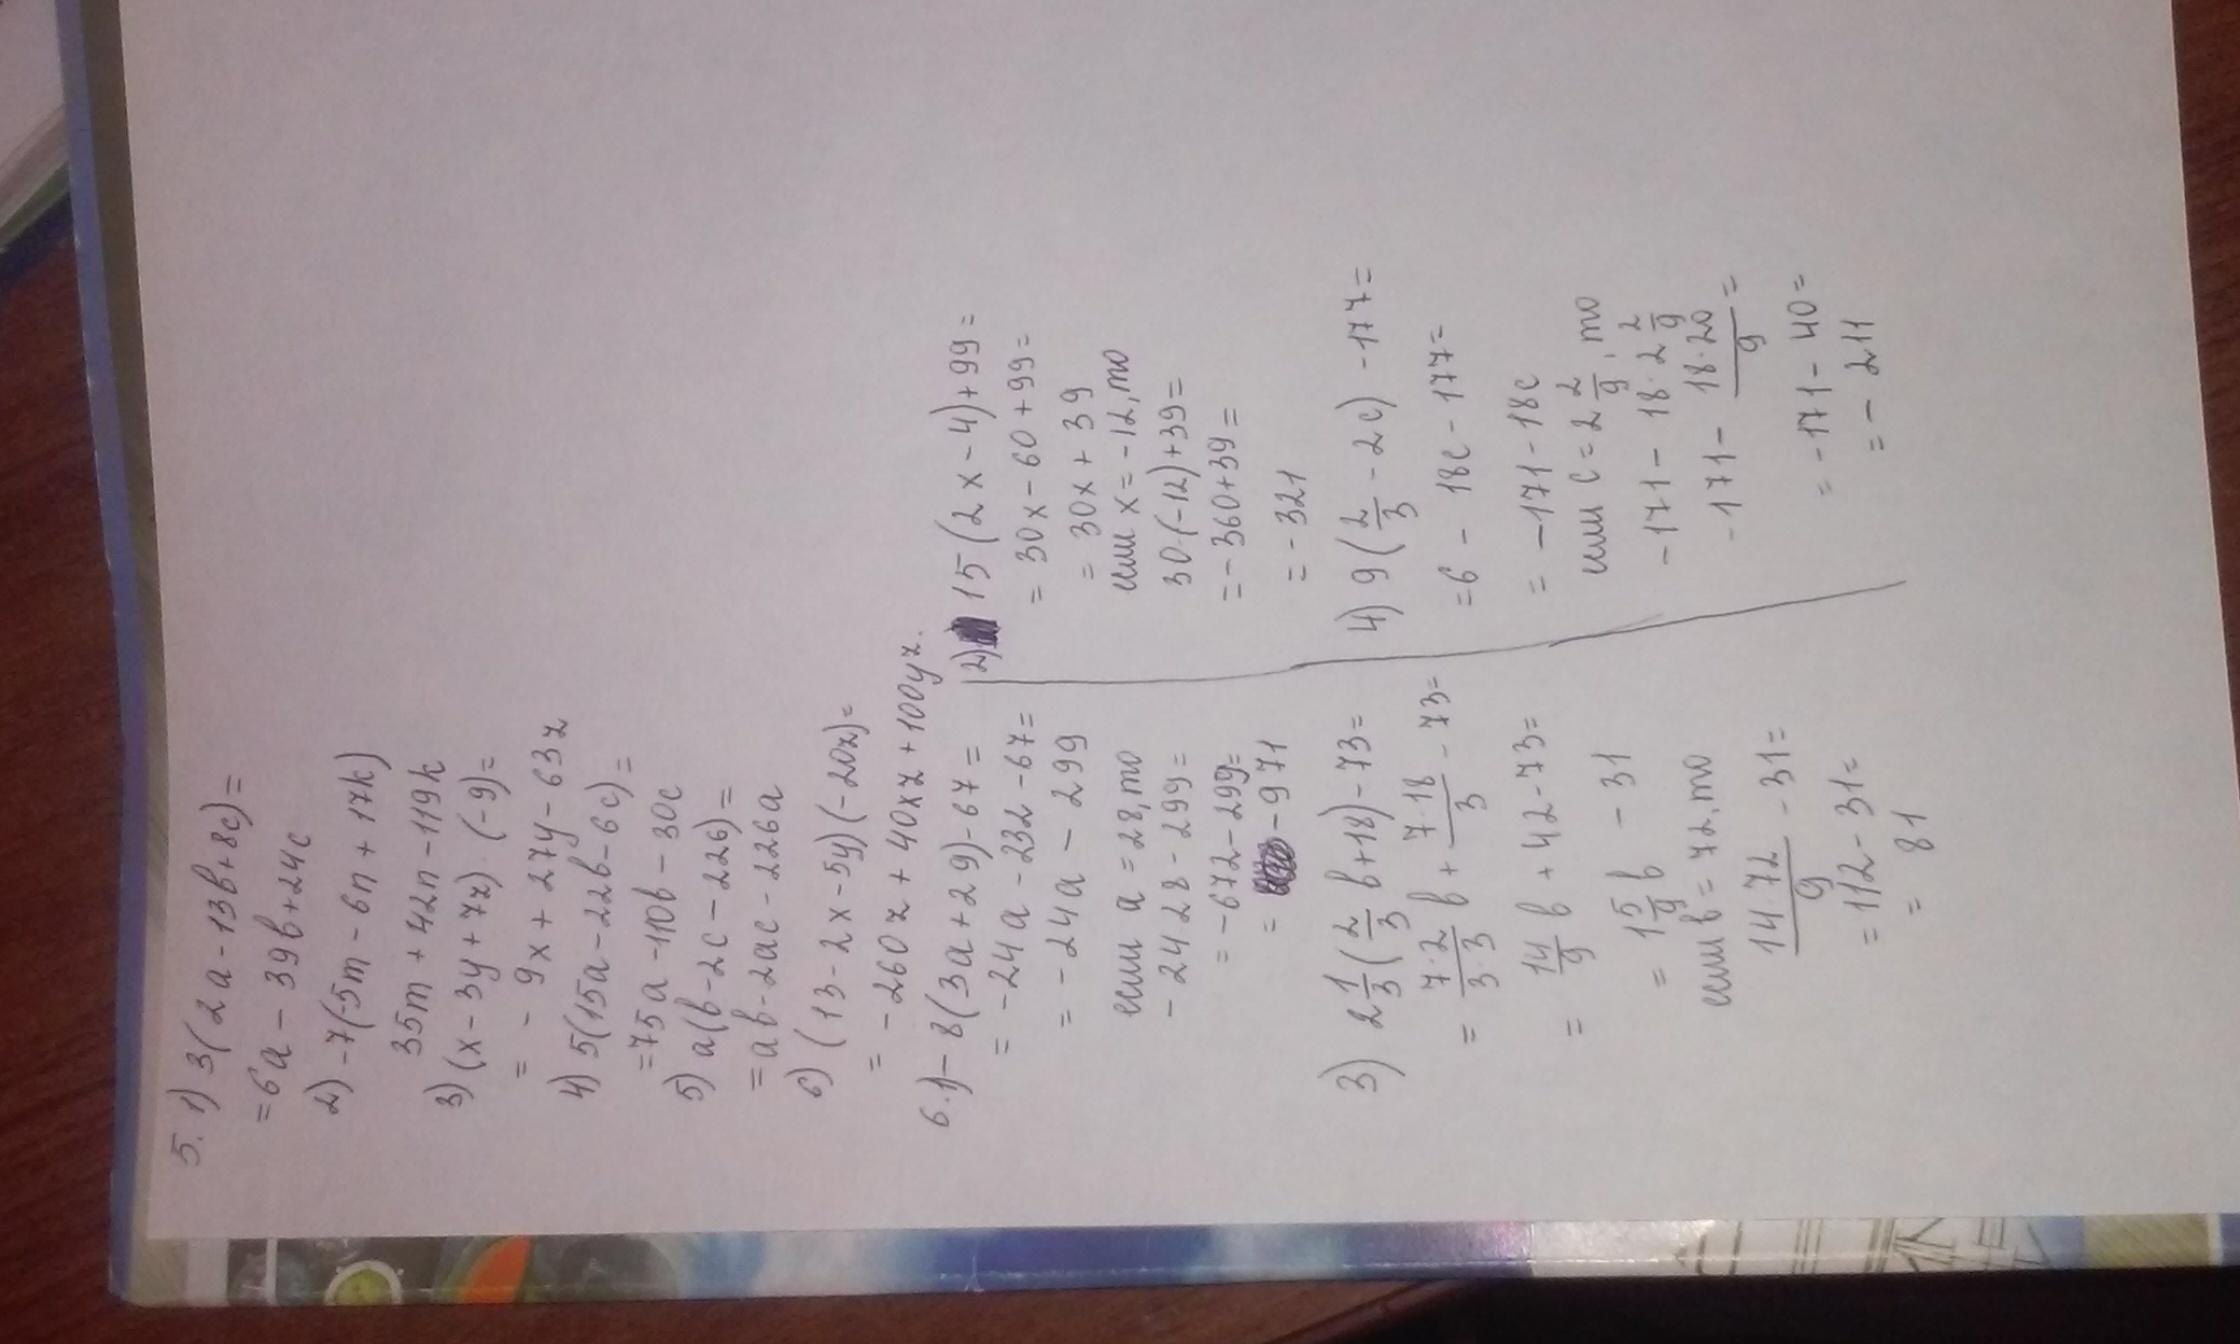 5. 1) 3(2a - 13b + 8c) =
= 6a - 39b + 24c
2) -7(-5m - 6n + 17k)
35m + 42n - 119k
3) (x - 3y + 7z) · (-9) =
= - 9x + 27y - 63z
4) 5(15a - 22b - 6c) =
= 75a - 110b - 30c
5) a(b - 2c - 226) =
= ab - 2ac - 226a
6) (13 - 2x - 5y)(-20z) =
= -260z + 40xz + 100yz.
6. 1) - 8(3a + 29) - 67 =
= -24a - 232 - 67 =
= -24a - 299
если a = 28, то
- 24 28 - 299 =
= -672 - 299 =
= - 971
2) 15(2x - 4) + 99 =
= 30x - 60 + 99 =
= 30x + 39
если x = -12, то
30·(-12) + 39 =
= - 360 + 39 =
= - 321
3) 2 1/3 (2/3 b + 18) - 73 =
= 7·2/3·3 b + 7·18/3 - 73 =
= 14/9 b + 42 - 73 =
= 15/9 b - 31
если b = 72, то
14·72/9 - 31 =
= 112 - 31 =
= 81
4) 9(2/3 - 2c) - 177 =
= 6 - 18c - 177 =
= - 171 - 18c
если c = 2 2/9, то
-171 - 18 · 2 2/9
-171 - 18·20/9 =
= - 171 - 40 =
= - 211